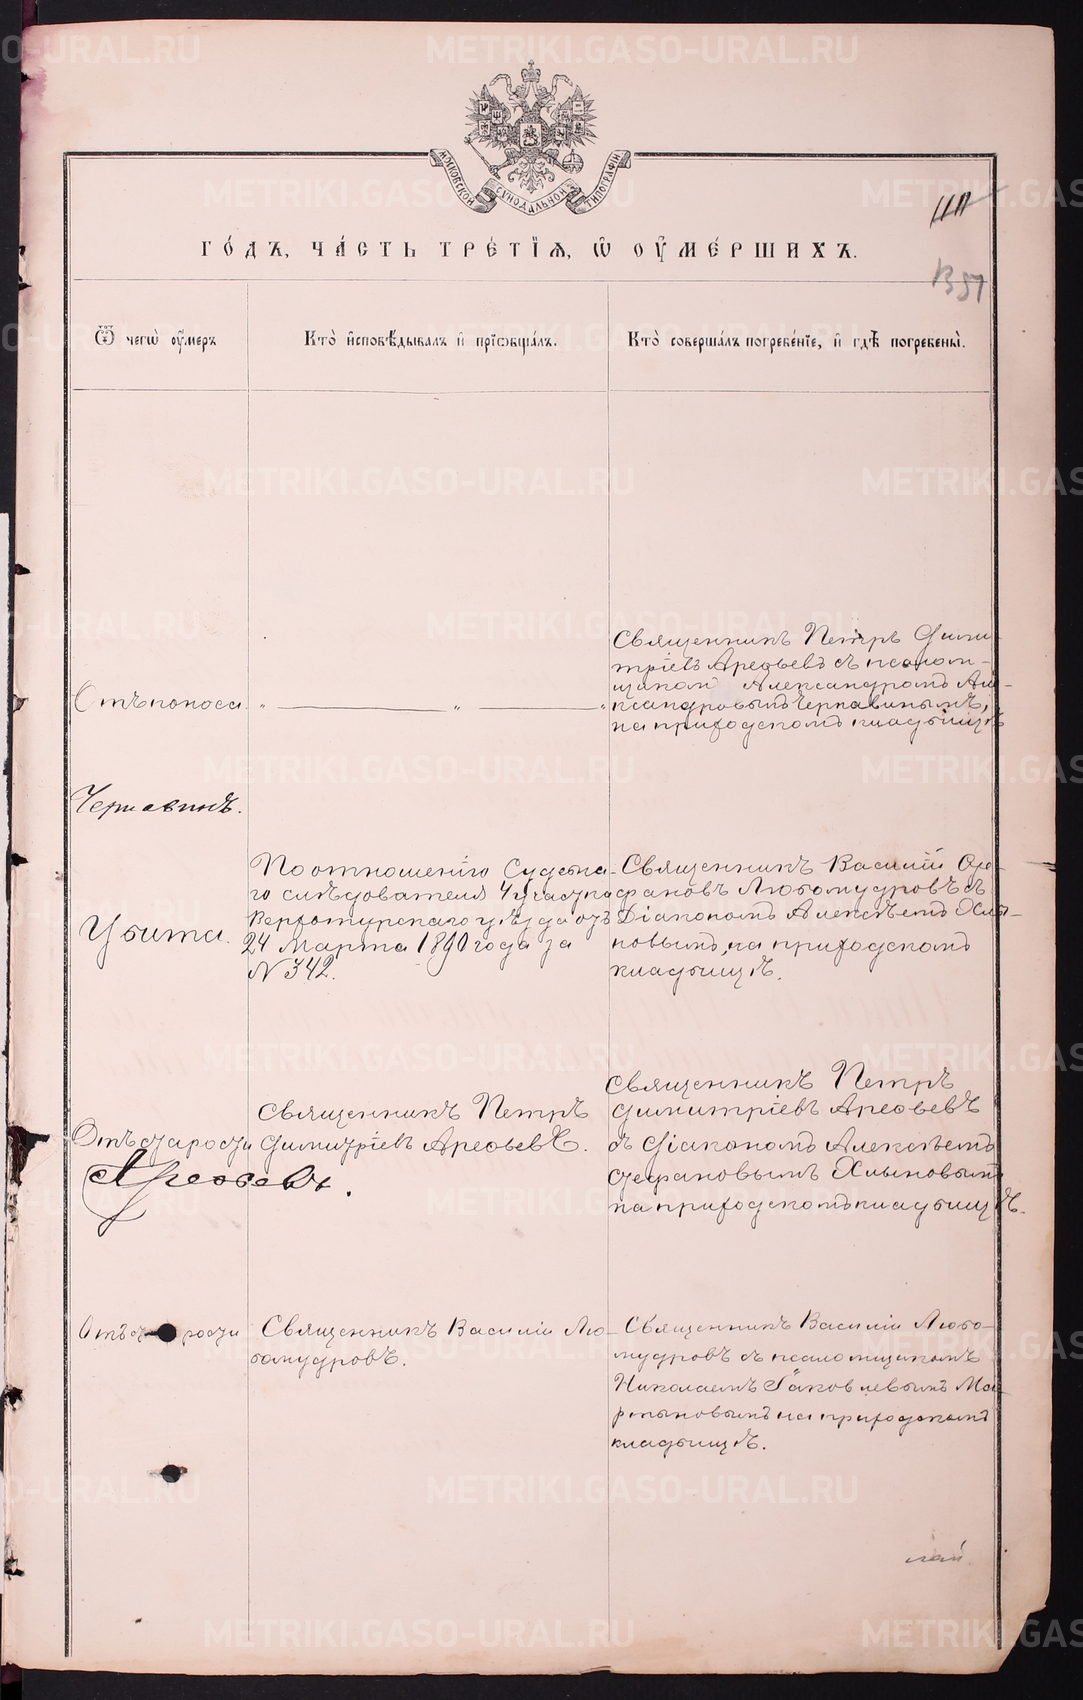 МОСКОВСКОЙ СѴНОДАЛЬНОЙ ТИПОГРАФІИ
ГО́ДЪ, ЧА́СТЬ ТРЕ́ТІѦ, Ѡ҆ ОУ҆МЕ́РШИХЪ.
Ѿ чегѡ̀ оу҆́меръ
Кто̀ и҆сповѣ́дывалъ и҆ прїѡбща́лъ.
Кто̀ соверша́лъ погребе́нїе, и҆ гдѣ̀ погребены̀.
Отъ поноса
" — " — "
Священникъ Петръ Дими-
тріевъ Арефьевъ съ псалом-
щикомъ Александромъ Але-
ксандровымъ Чернавинымъ,
на приходскомъ кладбищѣ
Чернавинъ.
Убита.
По отношенію Судебна-
го слѣдователя 4 участка
Верхотурскаго уѣзда отъ
24 Марта 1890 года за
N 342.
Священникъ Василій Сте-
фановъ Любомудровъ съ
Діакономъ Алексѣемъ Хлы-
новымъ, на приходскомъ
кладбищѣ.
Отъ старости
Священникъ Петръ
Димитріевъ Арефьевъ.
Священникъ Петръ
Димитріевъ Арефьевъ
съ Діакономъ Алексѣемъ
Стефановымъ Хлыновымъ
на приходскомъ кладбищѣ.
Арефьевъ.
Отъ старости
Священникъ Василій Лю-
бомудровъ.
Священникъ Василій Любо-
мудровъ съ псаломщикомъ
Николаемъ Іаковлевымъ Мар-
тыновымъ на приходскомъ
кладбищѣ.
METRIKI.GASO-URAL.RU